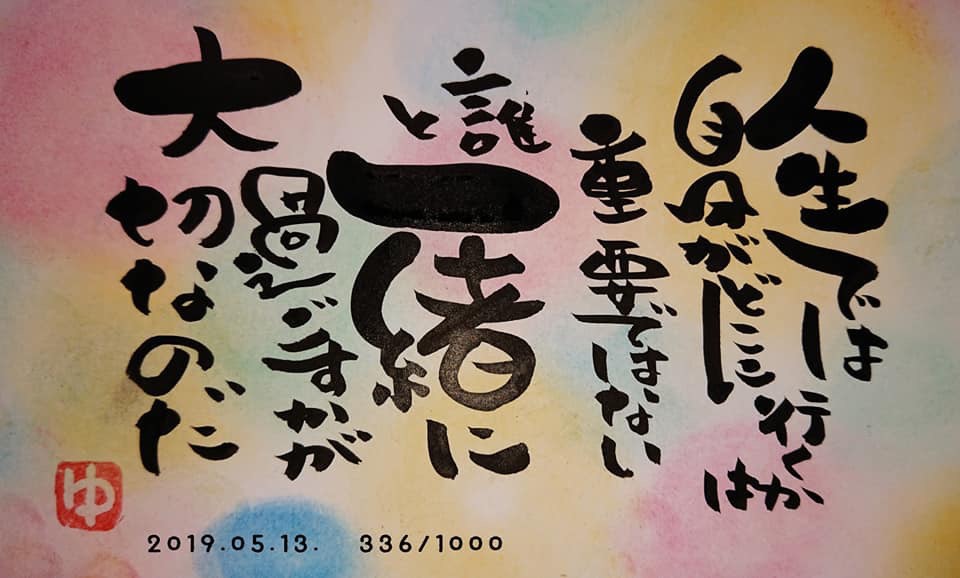 人生では
自分がどこに
行くかは
重要ではない
誰と
一緒に
過ごすかが
大切なのだ
ゆ
2019.05.13. 336/1000